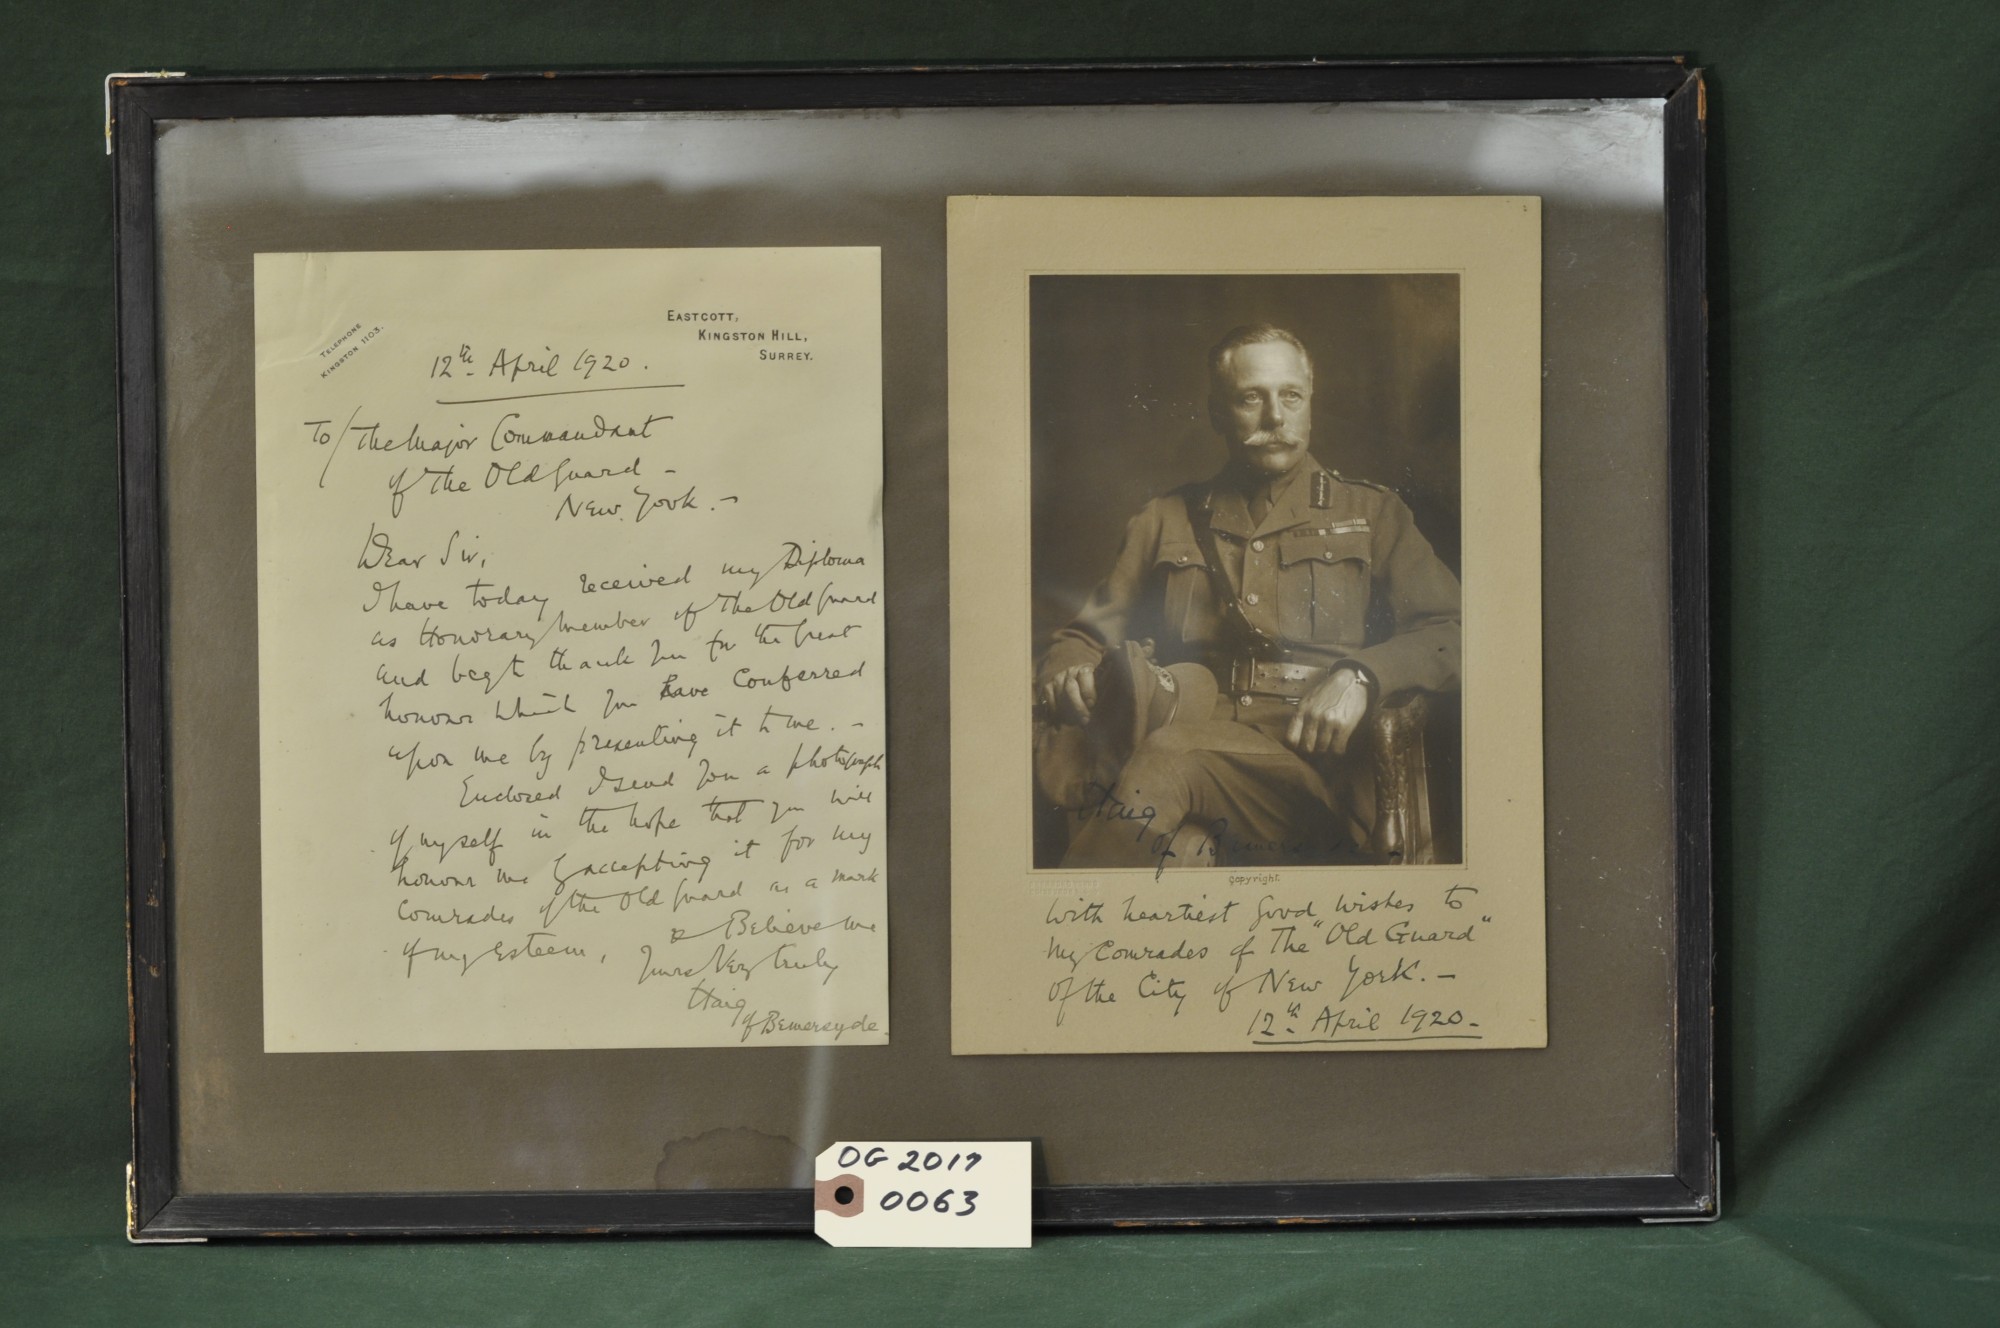 TELEPHONE
KINGSTON 1103.
EASTCOTT,
KINGSTON HILL,
SURREY.
12th April 1920.
To/ The Major Commandant
of The Old Guard –
New York. –
Dear Sir,
I have today received my Diploma
as Honorary Member of The Old Guard
and beg to thank you for the Great
honour which you have Conferred
upon me by presenting it to me. –
Enclosed I send you a photograph
of myself in the hope that you will
honour me by accepting it for my
Comrades of the Old Guard as a mark
of my Esteem,
Believe me
Yours Very truly
Haig
of Bemersyde.
Haig
of Bemersyde
Copyright.
With heartiest good wishes to
My Comrades of The "Old Guard"
of the City of New York. –
12th April 1920 –
OG 2017
0063